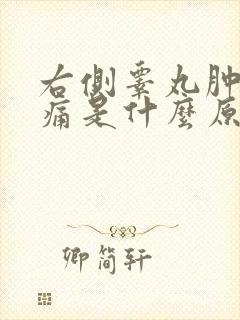 右側睾丸肿
痛是什麼原
卿简轩